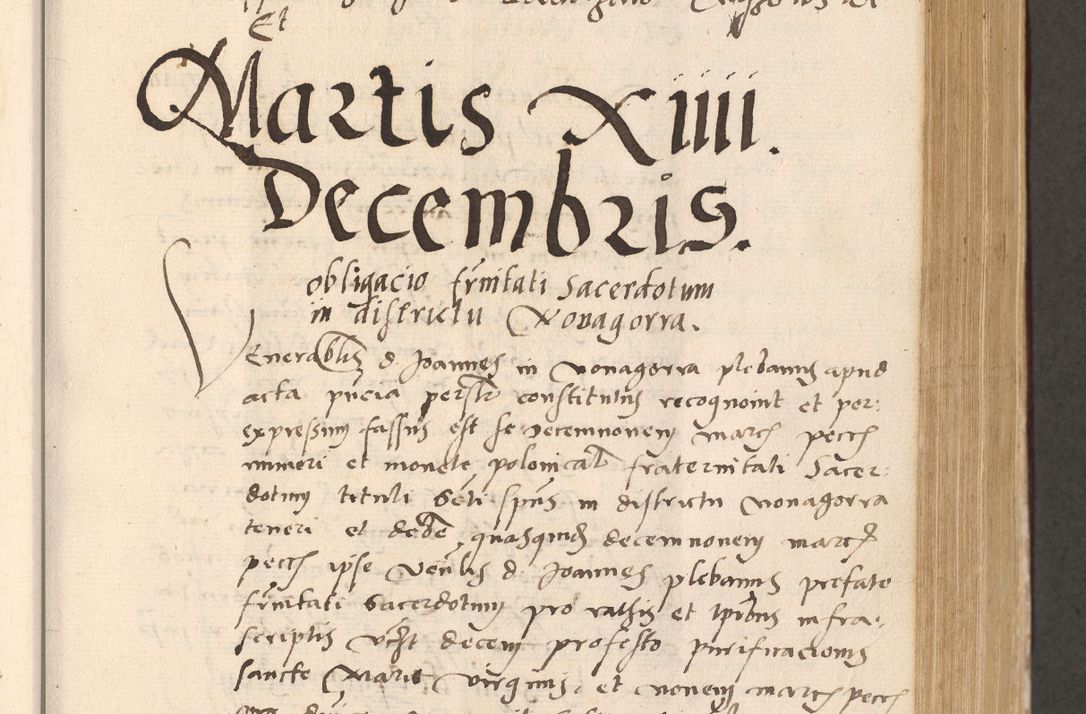 Et
Martis Xiiii.
Decembris.
obligacio frnitati Sacerdotum
in districtu Novagorra.
Venerablis d. Joannes in novagorra plebanus apud
acta pncia personalr constitutus recognovit et per:
expressum fassus est se decemnovem march pecch
numeri et monete polonical fraternitati Sacer:
dotum tituli Scti Spus in districtu novagorra
teneri et debe, quasquid decemnovem march
pecch ipse Venlis d. Joannes plebanus prefate
frnitati Sacerdotum pro rathis et tpibus infra:
scriptis videlicet decem profesto purificacionis
sancte Marie virginis, et novem march pecch